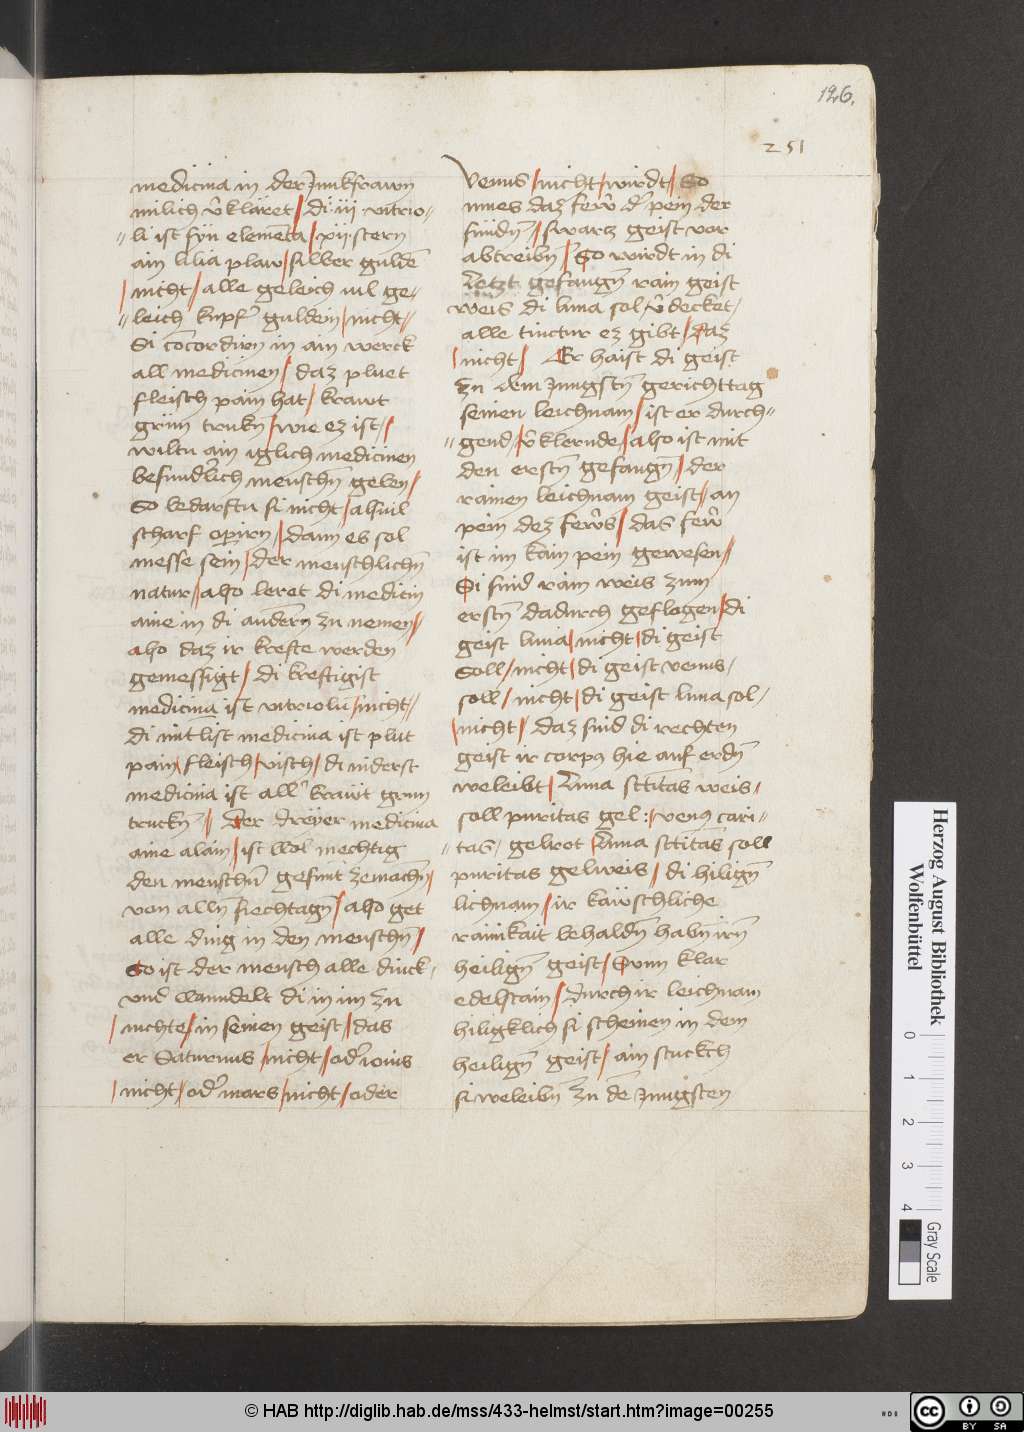 126.
251
medicina in der Junkfrawn
milich v̄kläret / di iij vitrio-
li ist fÿn elemēta / xij stern
ain lilia plaw / silber guldē
/ nicht / alle geleich vil ge-
leich kupf' guldein / nicht
Si cōcordirn in ain werck
all medicinen / daz pluet
fleisch pain hat / krawt
grün trukn̄ / wie ez ist /
wiltu ain iglich medicinen
besunderlich menschn̄ geben /
So bedarftu si nicht / alsuil
scharf opirn / dann es sol
messe sein / der menschlichn̄
natur / also leret di medicin
aine in di andern zu nemen /
also daz ir krefte werden
gemessigt / di kreftigist
medicina ist vitriolū / nicht
di mitlist medicina ist plut
pain / fleisch / visch / di niderst
medicina ist all krawt grun
truckn̄ / Der dreÿer medicina
aine alain / ist wol mechtig
den menschn̄ gesunt zemachn̄ /
von alln̄ siechtagn̄ / also get
alle ding in den menschn̄ /
So ist der mensch alle dinck
vnd wanndelt di in im zu
/ nichte / in seinen geist / das
er Saturnus / nicht / od' iouis
/ nicht / od' mars / nicht / oder
Venus / nicht / wirdt / So
mues daz fewr d' pein der
sündn̄ / swarcz geist vor
abtreibn̄ / So wirdt in di
letzt gefangn̄ rain geist
weis di luna sol v̄decket /
alle tinctur ez gibt / daz
/ nicht / Er haist di geist
zu dem Jungstn̄ gerichttag
seinen leichnam / ist er durch-
gend / v̄klernde / also ist mit
den erstn̄ gefangn̄ / der
rainen leichnam geist / an
pein dez fewrs / das fewr
ist im kain pein gewesen /
Si sind rain weis zum
erstn̄ dadurch geflogen / di
geist luna / nicht / di geist
Soll / nicht / di geist venus /
soll / nicht / di geist luna sol /
/ nicht / daz sind di rechten
geist ir corpus hie auf erdn̄
weleibt / Luna sctitas weis
soll puritas gel : / venus cari-
tas / gelrot Luna sctitas soll
puritas gelweis / di hilign̄
lichnam / ir käwschliche
rainikait behaldn̄ habn̄ irn̄
heilign̄ geist / Sunn klar
edelstain / durch ir leichnam
hiligklich si scheinen in dem
heilign̄ geist / ain stuckch
si weleibn̄ zu dē Jungsten
Herzog August Bibliothek
Wolfenbüttel
0 1 2 3 4
Gray Scale
© HAB http://diglib.hab.de/mss/433-helmst/start.htm?image=00255
HAB
cc BY SA